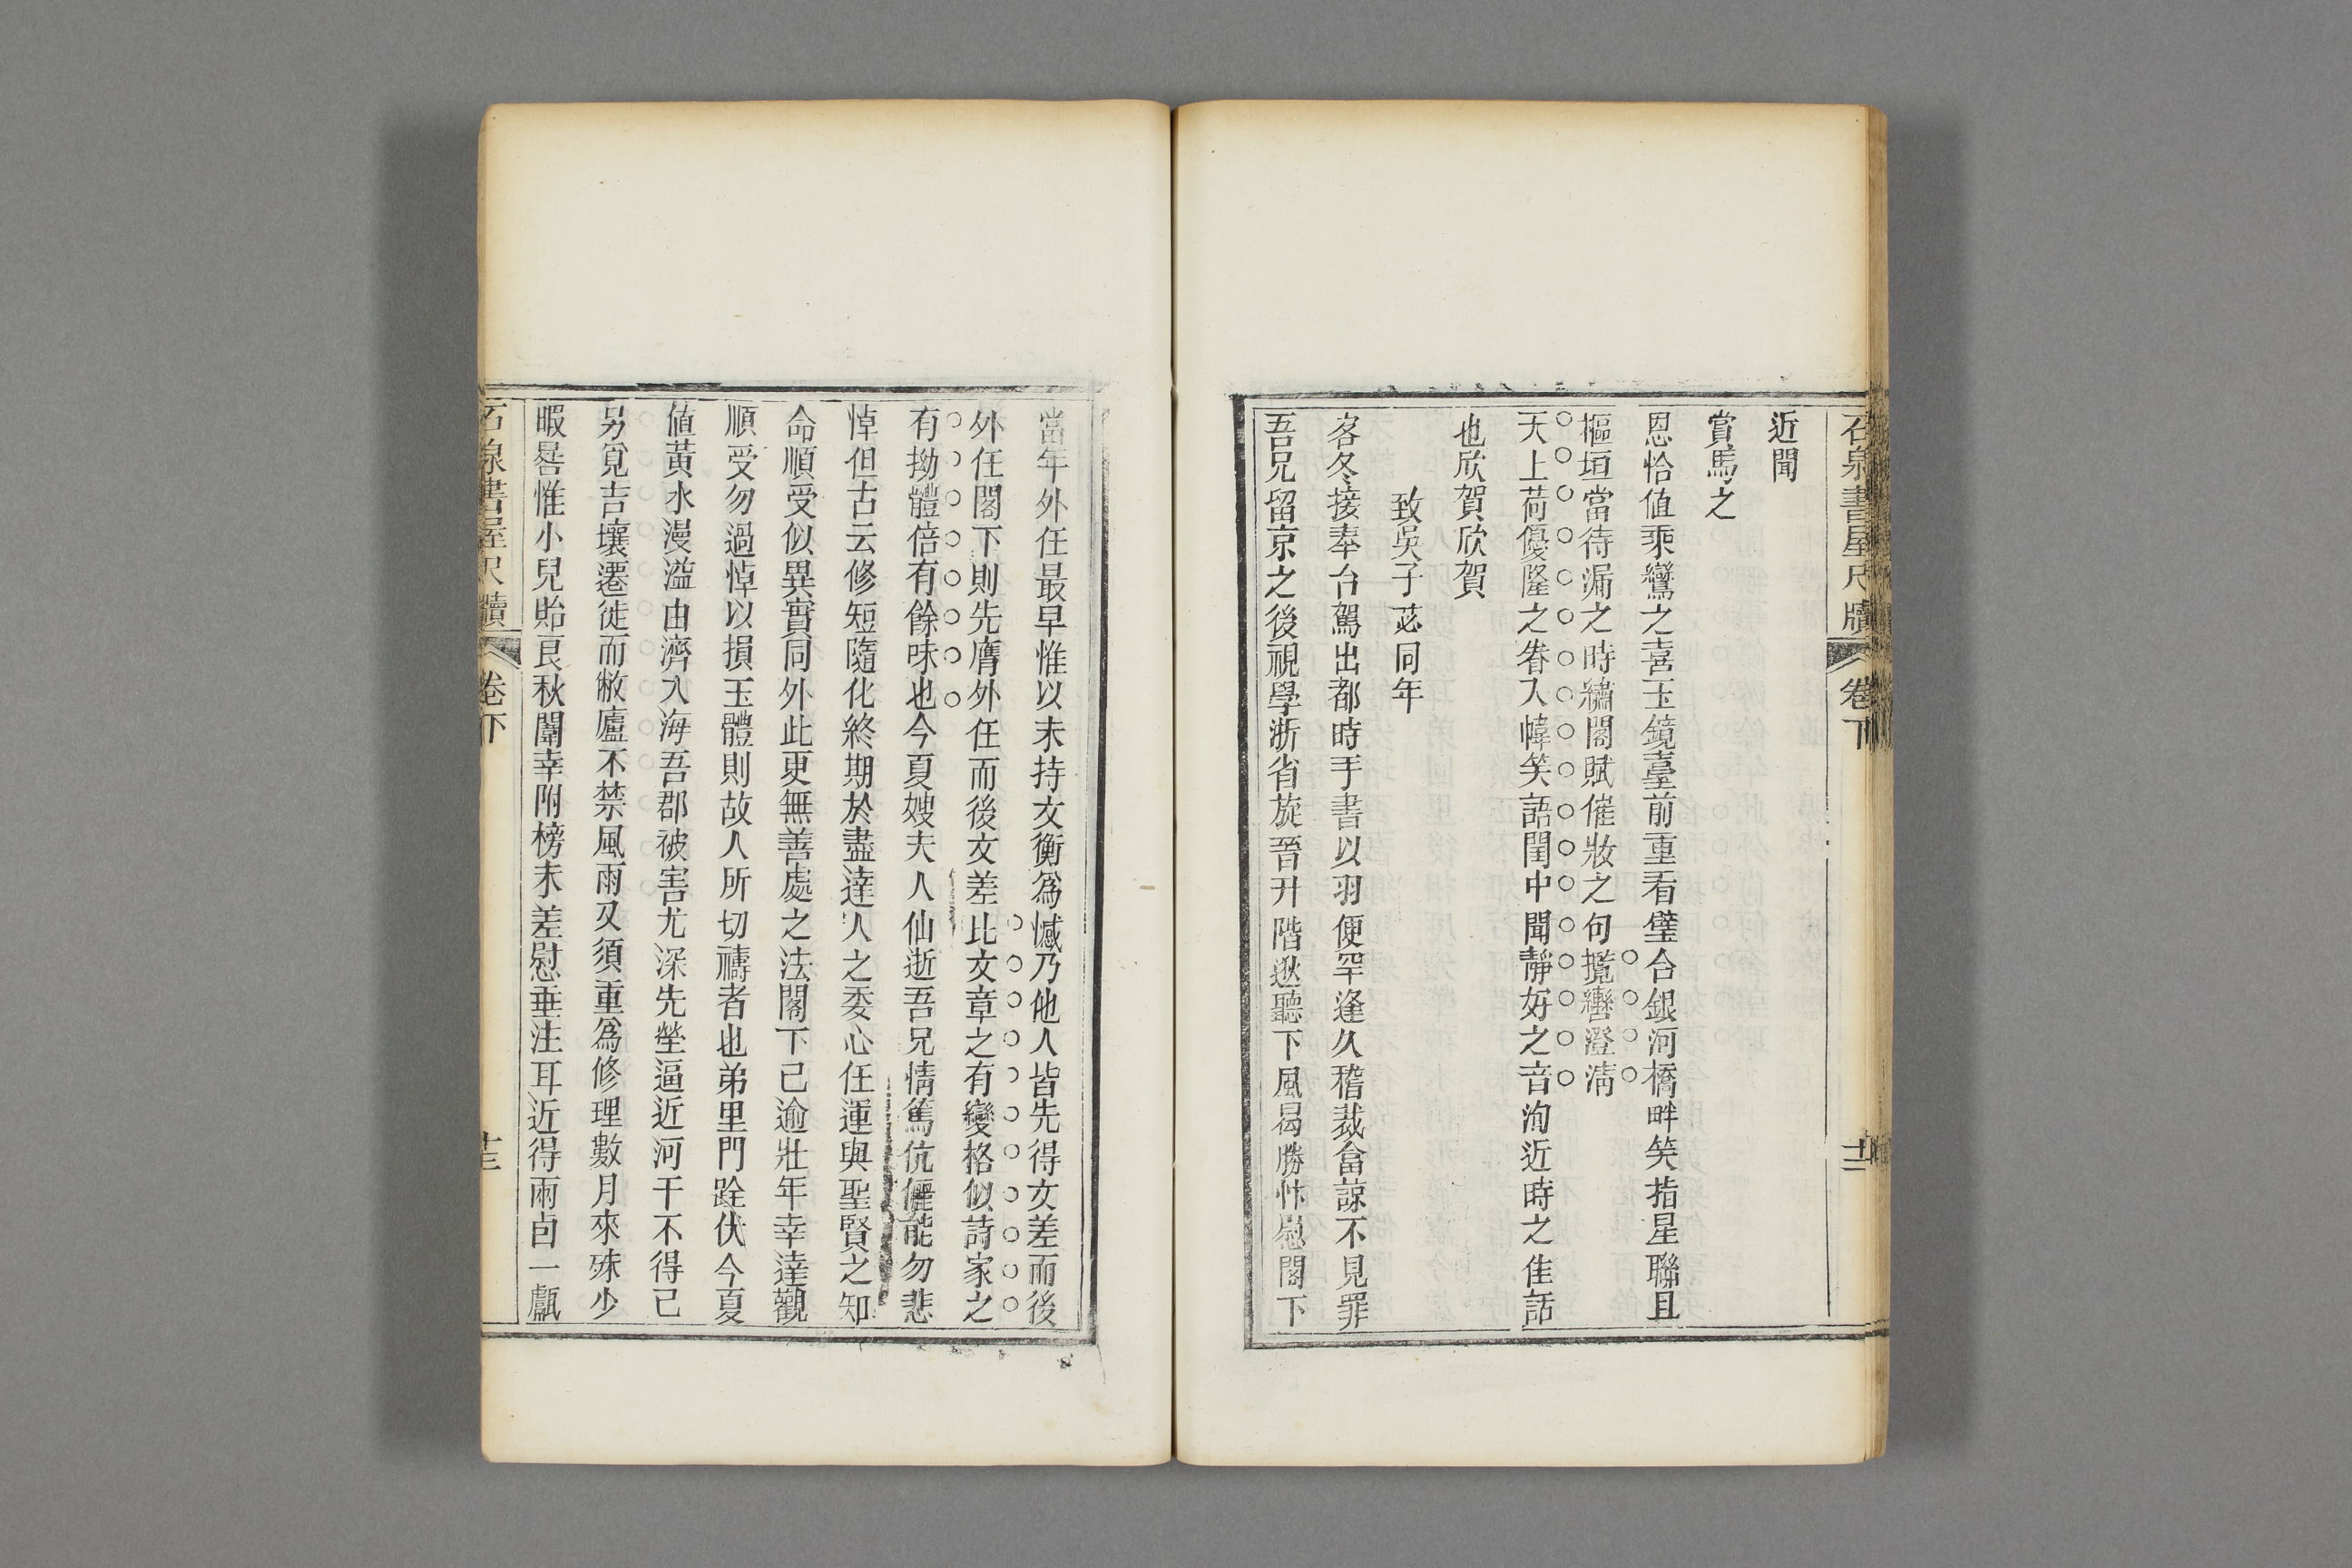 石泉書屋尺牘
卷下
十二
近聞
賞馬之
恩恰值乘鸞之喜玉鏡臺前重看璧合銀河橋畔笑指星聯且
樞垣當待漏之時繡閣賦催妝之句攬轡澄清
天上荷優隆之眷入幃笑語閨中聞靜好之音洵近時之佳話
也欣賀欣賀
致吳子苾同年
客冬接奉台駕出都時手書以羽便罕逢久稽裁畣諒不見罪
吾兄留京之後視學浙省旋晉升階逖聽下風曷勝忭慰閣下
當年外任最早惟以未持文衡為憾乃他人皆先得文差而後
外任閣下則先膺外任而後文差比文章之有變格似詩家之
有拗體倍有餘味也今夏嫂夫人仙逝吾兄情篤伉儷能勿悲
悼但古云修短隨化終期於盡達人之委心任運與聖賢之知
命順受似異實同外此更無善處之法閣下已逾壯年幸達觀
順受勿過悼以損玉體則故人所切禱者也弟里門跧伏今夏
值黃水漫溢由濟入海吾郡被害尤深先塋逼近河干不得已
另覓吉壤遷徙而敝廬不禁風雨又須重為修理數月來殊少
暇晷惟小兒貽良秋闈幸附榜末差慰垂注耳近得兩卣一甗
石泉書屋尺牘
卷下
十三